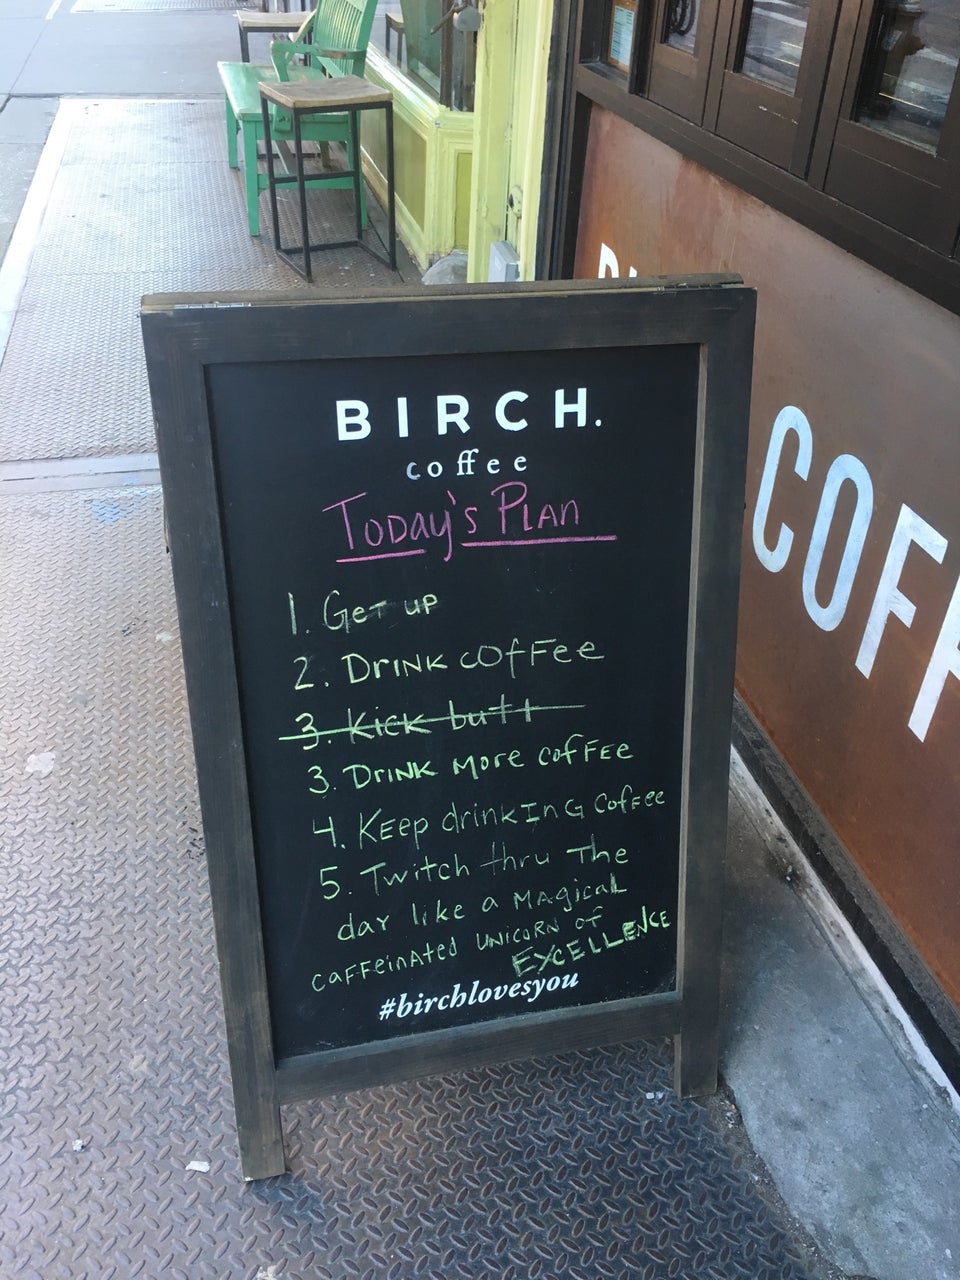 BIRCH.
coffee
Today's Plan
1. Get up
2. Drink coffee
3. Kick butt
3. Drink More coffee
4. Keep drinking coffee
5. Twitch thru The
day like a Magical
caffeinated unicorn of
EXCELLENCE
#birchlovesyou
COFF